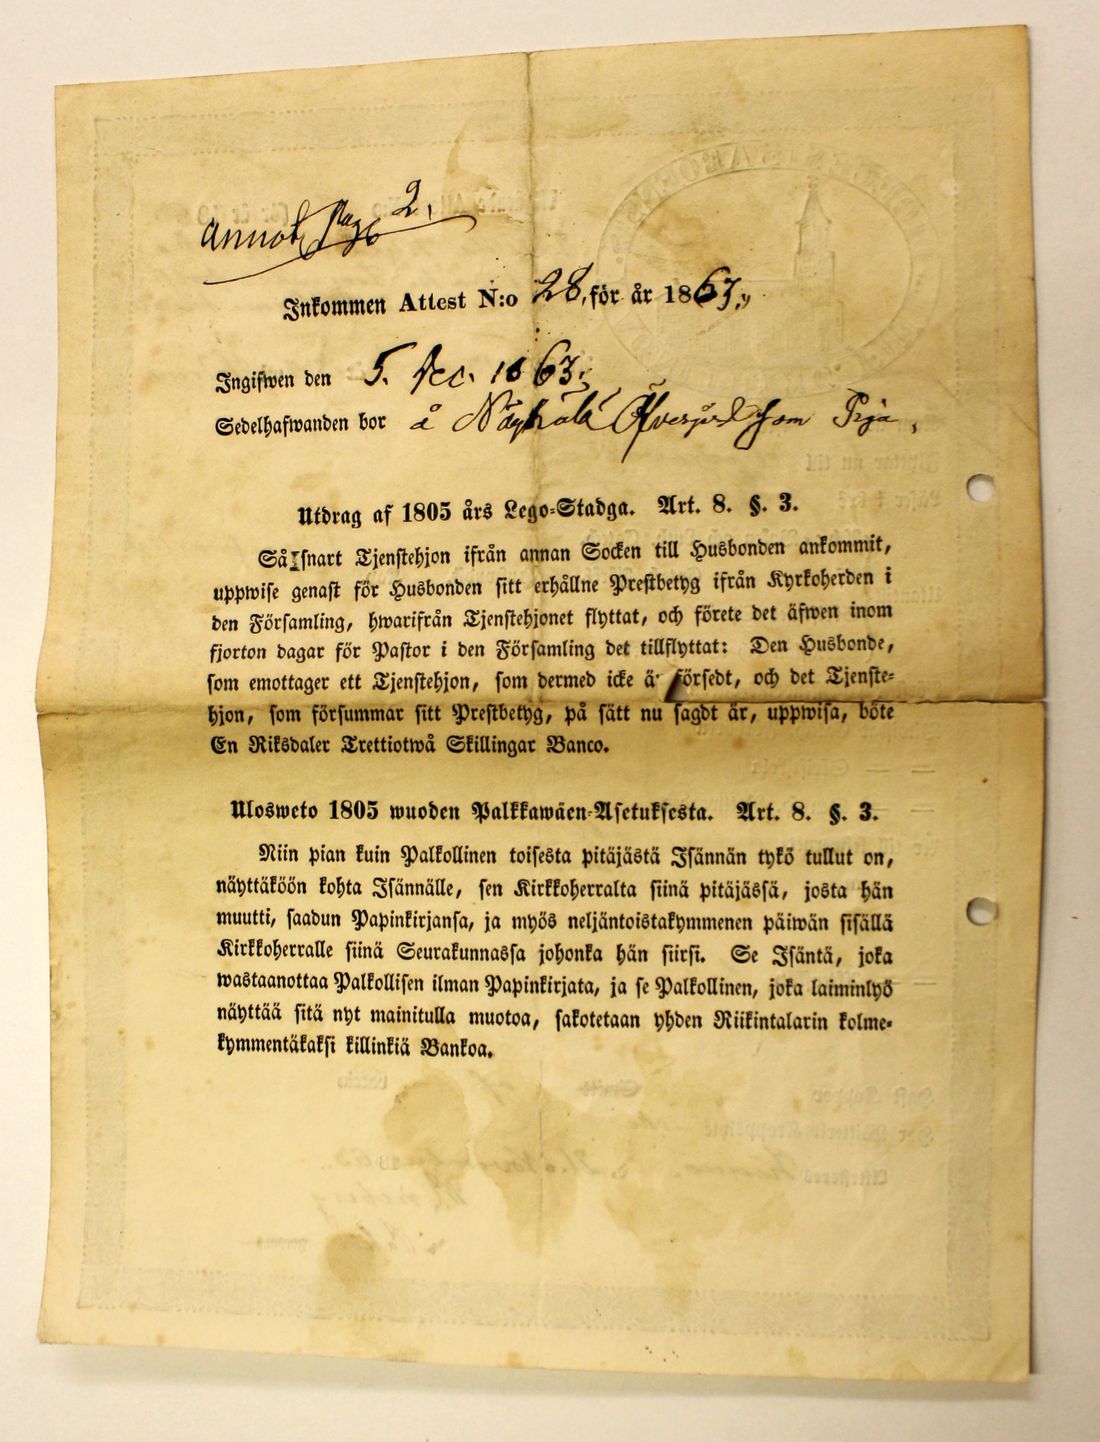 annot. Pag. 2.
Inkommen Attest N:o 28, för år 1863.
Ingifwen den 5. Dec. 1863.
Sedelhafwanden bor å som Piga,
Utdrag af 1805 års Lego-Stadga. Art. 8. §. 3.
Så snart Tjenstehjon ifrån annan Socken till Husbonden ankommit,
uppwise genast för Husbonden sitt erhållne Prestbetyg ifrån Kyrkoherden i
den Församling, hwarifrån Tjenstehjonet flyttat, och förete det äfwen inom
fjorton dagar för Pastor i den Församling det tillflyttat: Den Husbonde,
som emottager ett Tjenstehjon, som dermed icke är försedt, och det Tjenste-
hjon, som försummar sitt Prestbetyg, på sätt nu sagdt är, uppwisa, böte
En Riksdaler Trettiotwå Skillingar Banco.
Ulosweto 1805 wuoden Palkkawäen-Asetuksesta. Art. 8. §. 3.
Niin pian kuin Palkollinen toisesta pitäjästä Isännän tykö tullut on,
näyttäköön kohta Isännälle, sen Kirkkoherralta siinä pitäjässä, josta hän
muutti, saadun Papinkirjansa, ja myös neljäntoistakymmenen päiwän sisällä
Kirkkoherralle siinä Seurakunnassa johonka hän siirsi. Se Isäntä, joka
wastaanottaa Palkollisen ilman Papinkirjata, ja se Palkollinen, joka laiminlyö
näyttää sitä nyt mainitulla muotoa, sakotetaan yhden Riikintalarin kolme-
kymmentäkaksi killinkiä Bankoa.